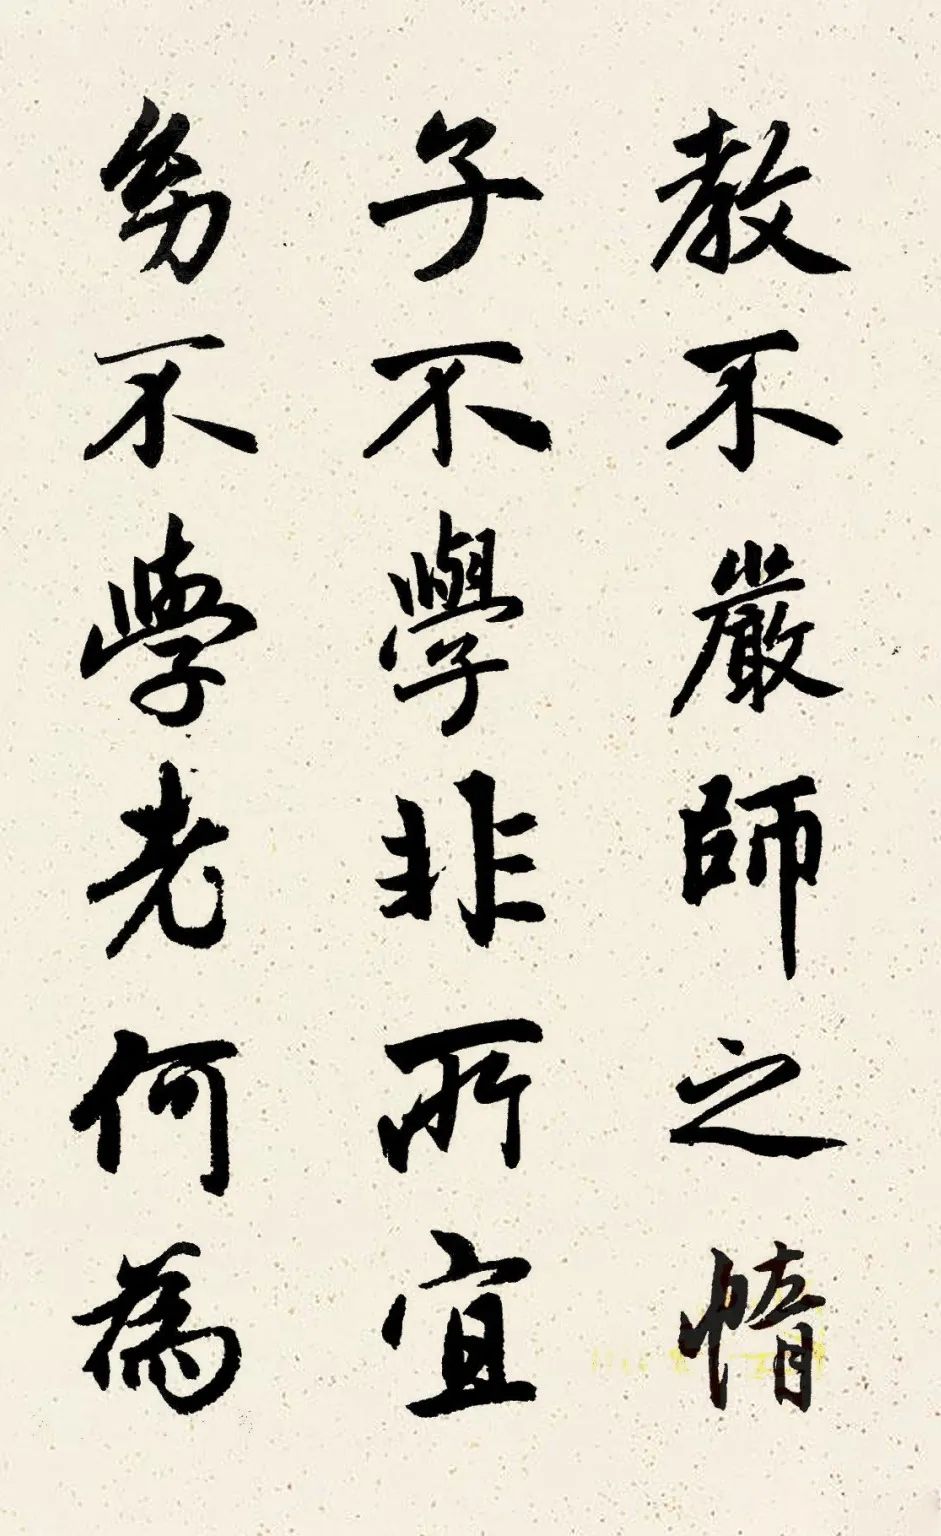 教不嚴師之惰
子不學非所宜
幼不學老何為